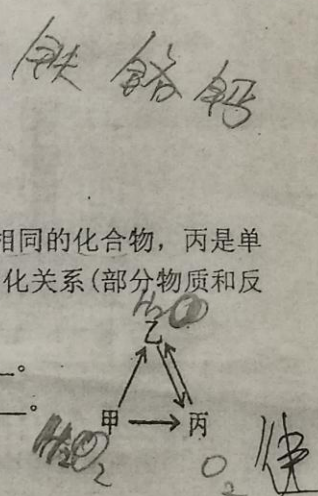 铁 铬 钙
相同的化合物，丙是单
化关系(部分物质和反
H₂O
乙
。
。
甲 丙
H₂O₂
O₂